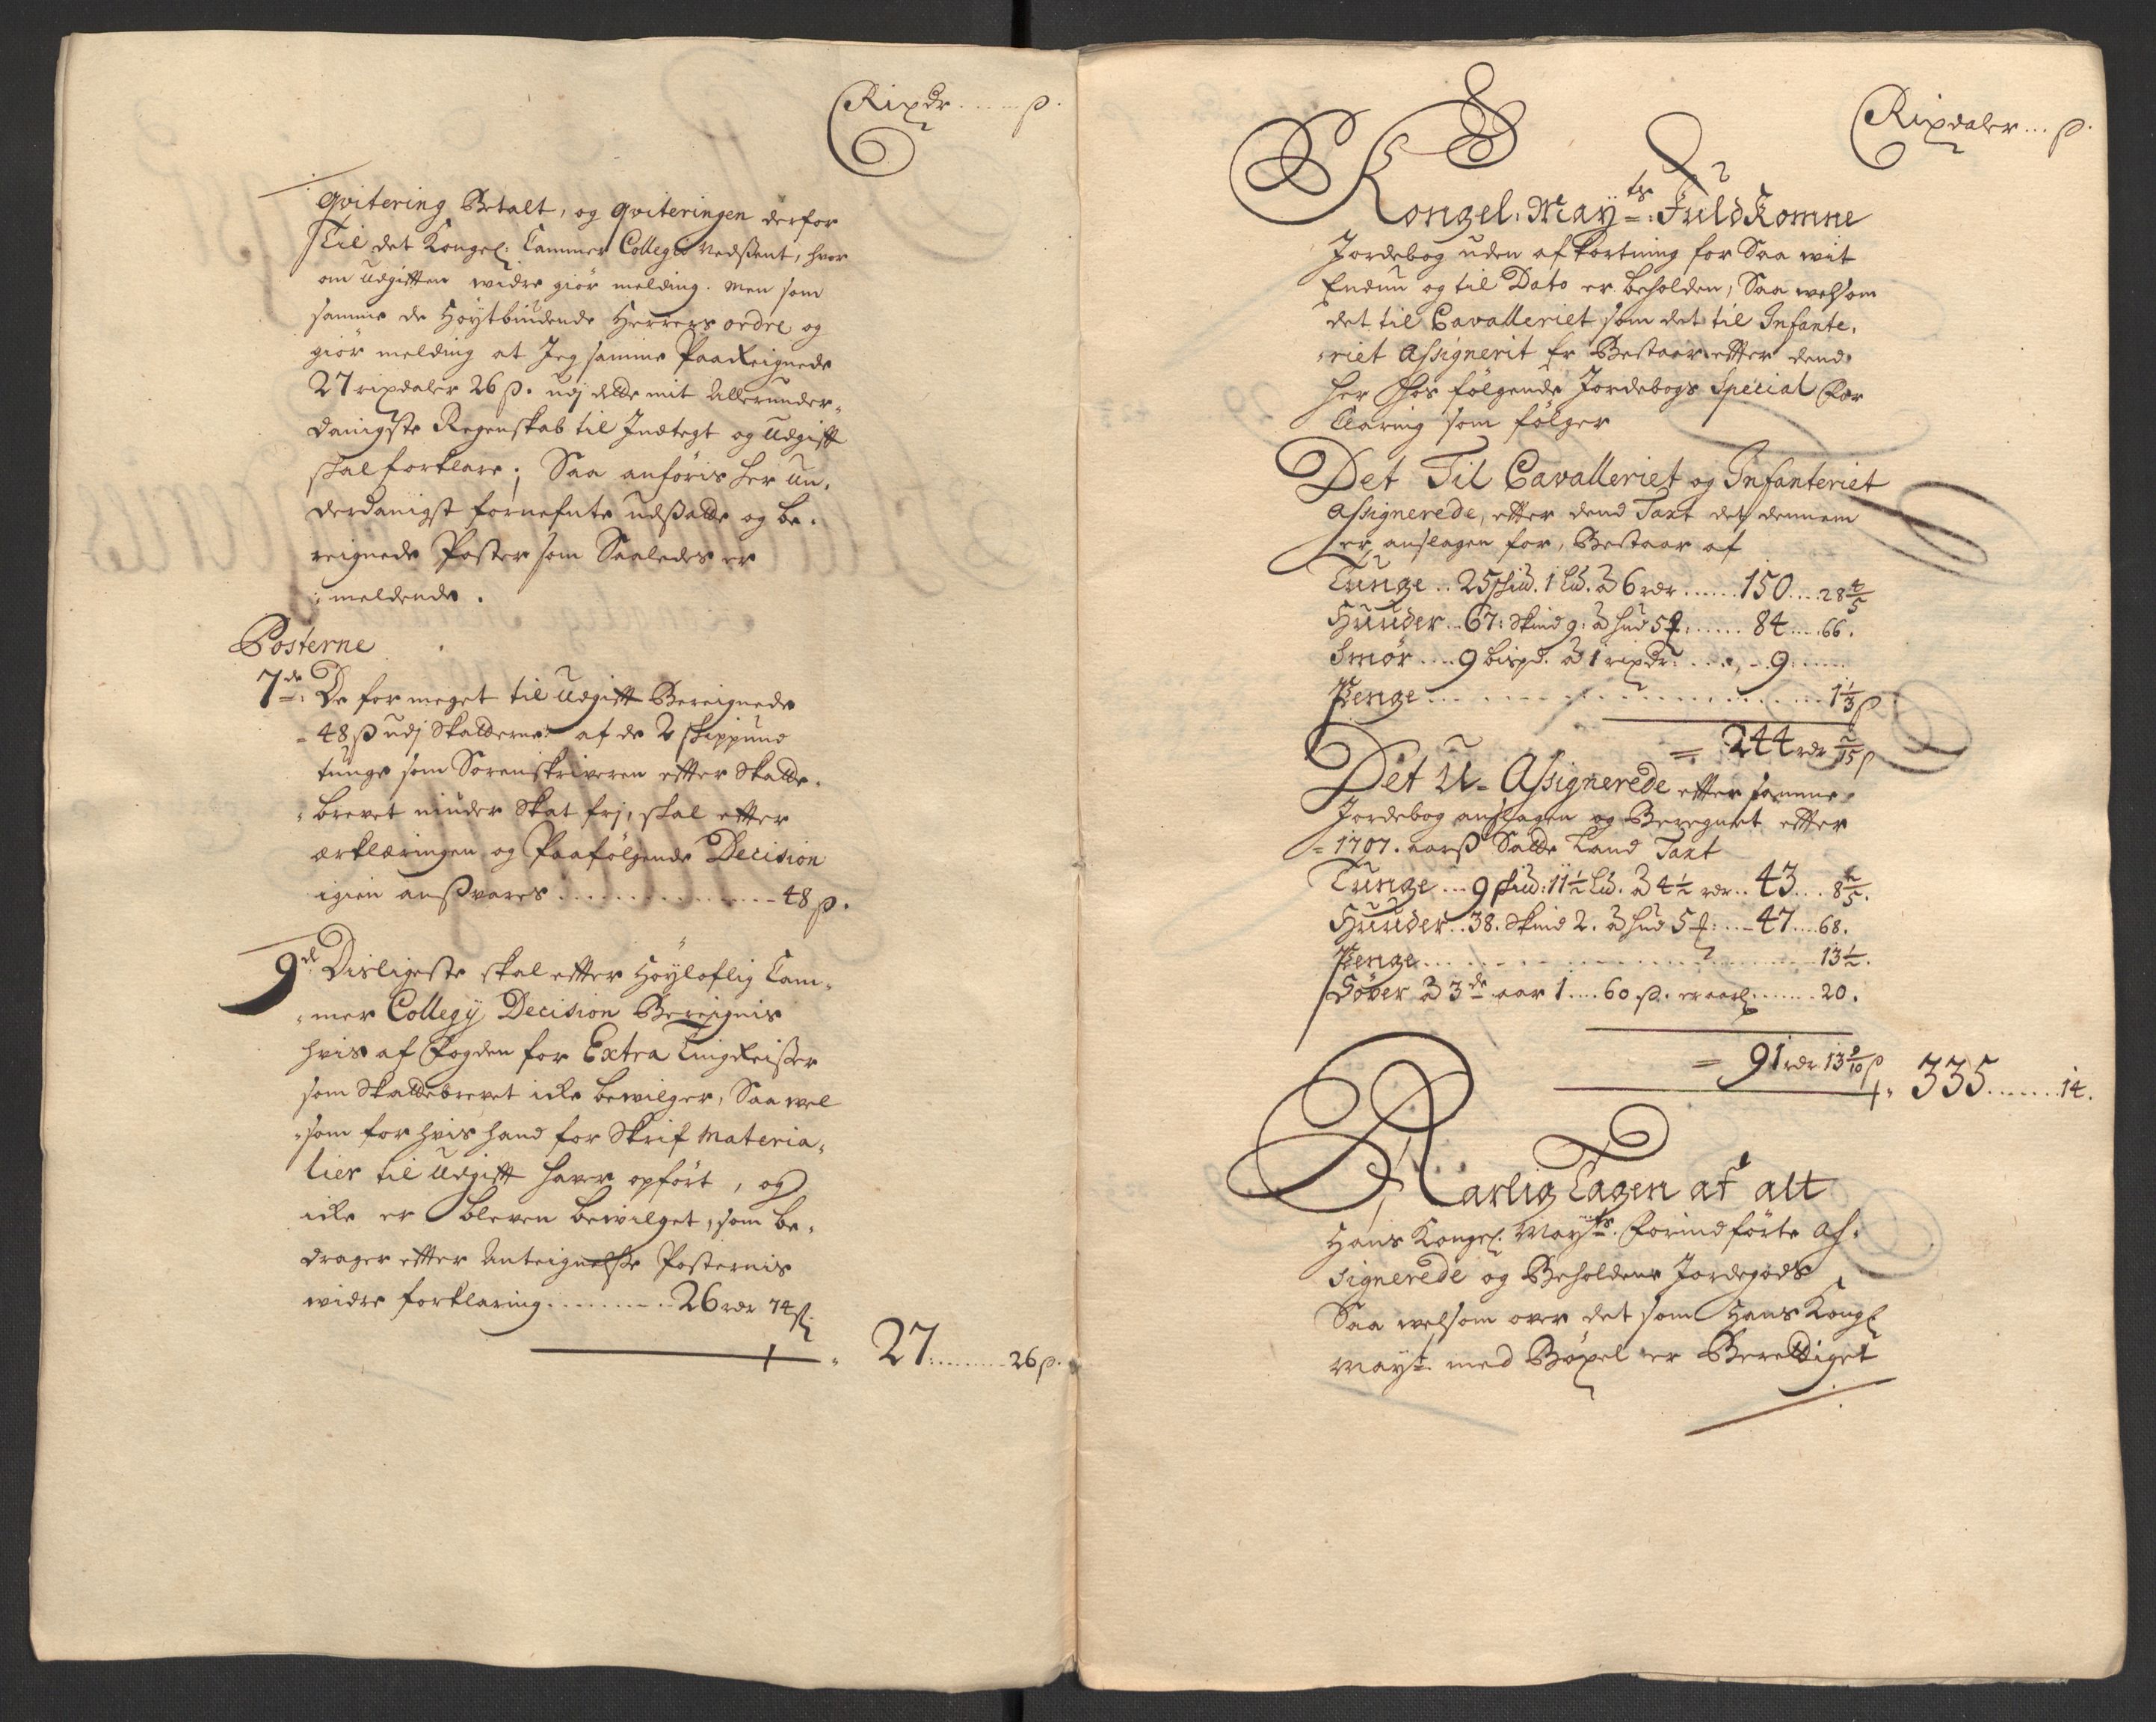 Rixdr ..... ß.
qvitering Betalt, og qviteringen derfor
til det Kongel: Cammer Collegio Nedsent, hvor
om udgifften widre giör melding. Men som
samme de Höytbiudende Herrers ordre og
giör melding at Jeg samme Paareignede
27 rixdaler 26 ß. udj dette mit Allerunder-
danigste Regenskab til Indtegt og Udgifft
skal forklare; Saa anföris her un-
derdanigst fornefnte udsatte og be-
reignede Poster som Saaledes er
meldende.
Posterne
7de: De for meget til Udgifft Bereignede
48 ß udj Skatterne af de 2 skippund
tunge som Sorenskriveren efter Skatte-
brevet niuder Skat frj, skal efter
erklæringen og Paafölgende Decision
igien ansvares ............... 48 ß.
9de Disligeste skal efter Höyloflig Cam-
mer Collegij Decision Bereignis
hvis af Fogden for Extra Tingreiser
som Skattebrevet icke bewilger, Saa wel
som for hvis hand for Skrif Materia-
lier til Udgifft haver opfört, og
icke er bleven bewilget, som be-
drager efter Anteignelse Posternis
widre forklaring .......... 26 rdr 74 ß
27 ......... 26 ß.
Rixdaler ... ß.
Kongel: Mayts: Fuldkomne
Jordebog uden afkortning for Saa wit
Endnu og til Dato er beholden, Saa welsom
det til Cavalleriet som det til Infante-
riet Assignerit Er Bestaar efter dend
her hos fölgende Jordebogs Special For
klaring som fölger
Det Til Cavalleriet og Infanteriet
Assignerede, efter dend Taxt det dennem
er anslagen for, Bestaar af
Tunge .. 25 skud. 1 lud. à 6 rdr ...... 150 .... 28 4/5
Huuder .. 67: Skind 9: à hud 5 ...... 84 .... 66.
Smör .... 9 bispd. à 1 rixdr: ..... 9: .....
Penge ........................ 1 1/3 ß
= 244 rdr 2/15 ß
Det U-Assignerede efter samme
Jordebog anslagen og Beregnet efter
1707. aars Satte Land Taxt
Tunge ... 9 skud: 11 1/2 lud. à 4 1/2 rdr .. 43 ... 8 2/5.
Huuder .. 38. Skind 2. à hud 5 .... 47 .... 68.
Penge ........................ 13 1/2.
Döver à 3de aar 1 .... 60 ß. er aarl ....... 20.
= 91 rdr 13 9/10 ß
335 ....... 14.
Aarlig Tagen af alt
Hans Kongel: Mayts: Forindförte As-
signerede og Beholdene Jordegods
Saa welsom over det som Hans Kongl
Mayt: med Böxel er Berettiget